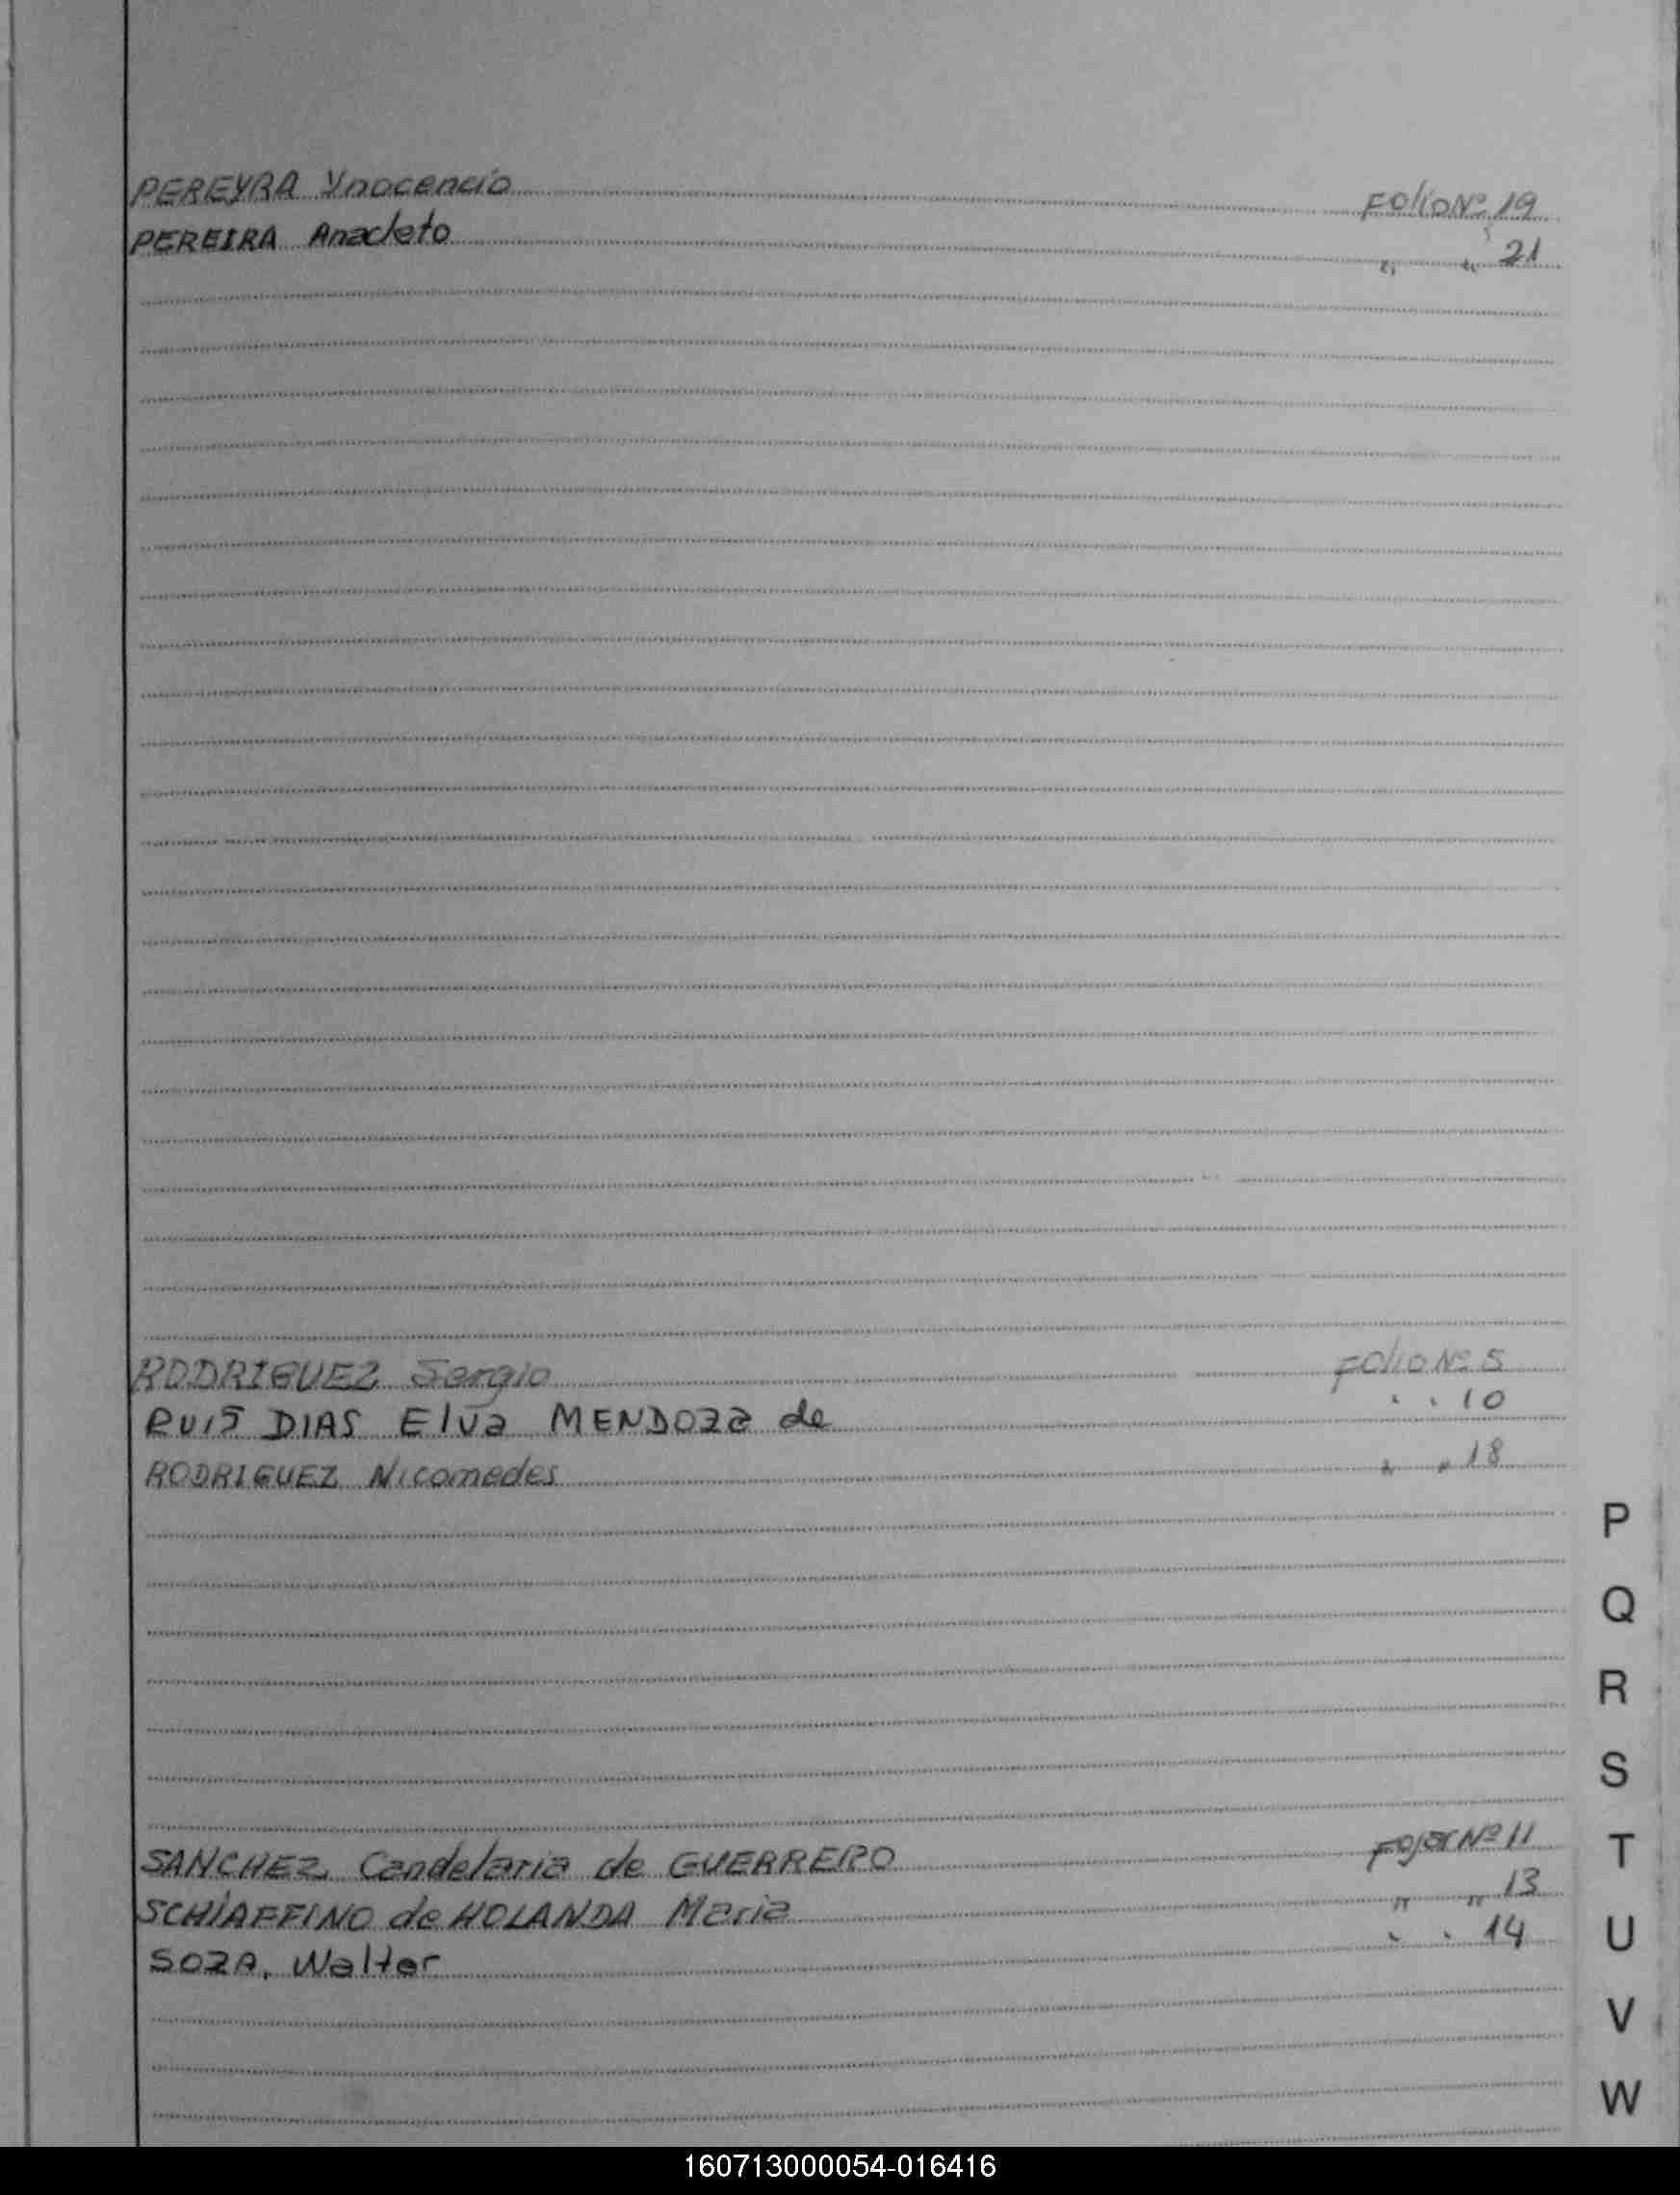 PEREYRA Ynocencio Folio Nº 19
PEREIRA Anacleto " " 21
RODRIGUEZ Sergio Folio Nº 5
RUIS DIAS Elva MENDOZA de " " 10
RODRIGUEZ Nicomedes " " 18
SANCHEZ Candelaria de GUERRERO Nº 11
SCHIAFFINO de HOLANDA Maria " " 13
SOZA, Walter " " 14
P
Q
R
S
T
U
V
W
160713000054-016416